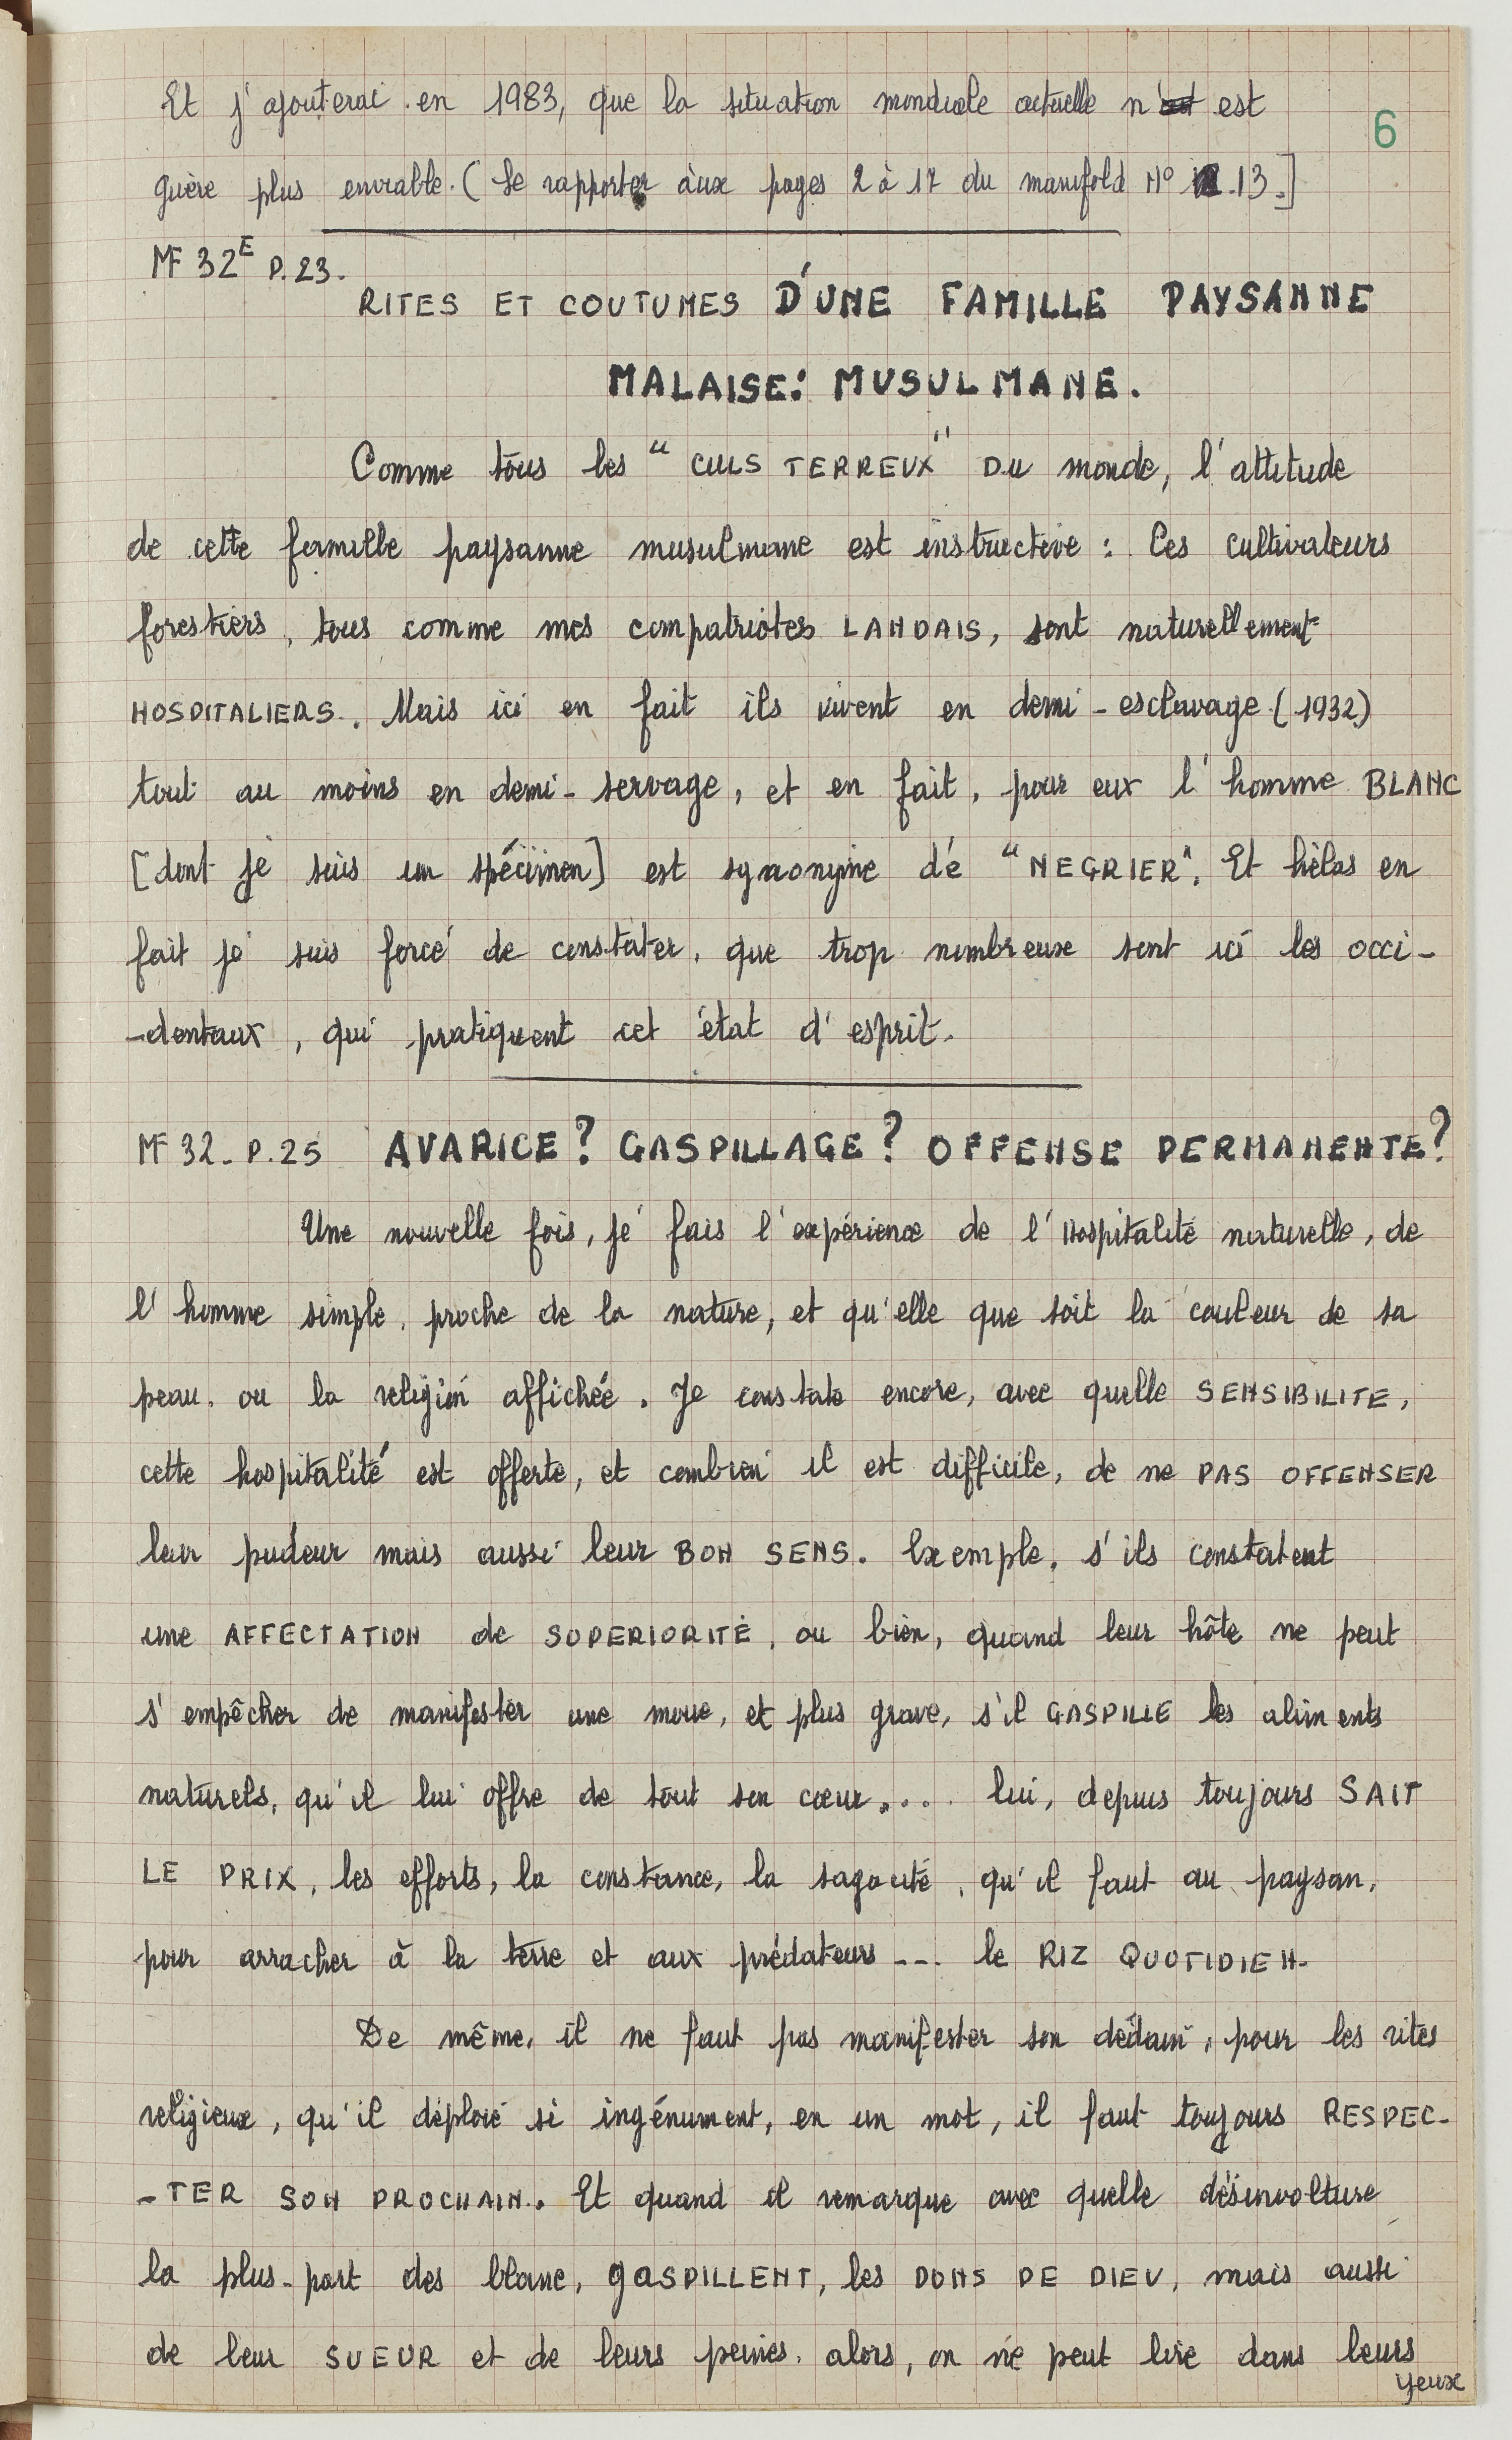 Et j'ajouterai en 1983, que la situation mondiale actuelle n'est
6
guère plus enviable. (Se rapporter àux pages 2 à 17 du manifold N° 13.]
MF 32E P.23.
RITES ET COUTUMES D'UNE FAMILLE PAYSANNE
MALAISE: MUSULMANE.
Comme tous les "CULS TERREUX" DU monde, l'attitude
de cette famille paysanne musulmane est instructive : Ces cultivateurs
forestiers, tous comme mes compatriotes LANDAIS, sont naturellement
HOSPITALIERS. Mais ici en fait ils vivent en demi-esclavage (1932)
tout au moins en demi-servage, et en fait, pour eux l'homme BLANC
[dont je suis un spécimen] est synonyme de "NEGRIER". Et hèlas en
fait je suis forcé de constater, que trop nombreux sont ici les occi-
-dentaux, qui pratiquent cet état d'esprit.
MF 32. P.25 AVARICE? GASPILLAGE? OFFENSE PERMANENTE?
Une nouvelle fois, je fais l'expérience de l'Hospitalité naturelle, de
l'homme simple, proche de la nature, et qu'elle que soit la couleur de sa
peau, ou la religion affichée. Je constate encore, avec quelle SENSIBILITE,
cette hospitalité est offerte, et combien il est difficile, de ne PAS OFFENSER
leur pudeur mais aussi leur BON SENS. Exemple, s'ils constatent
une AFFECTATION de SUPERIORITÉ, ou bien, quand leur hôte ne peut
s'empêcher de manifester une moue, et plus grave, s'il GASPILLE les aliments
naturels, qu'il lui offre de tout son cœur.... lui, depuis toujours SAIT
LE PRIX, les efforts, la constance, la sagacité, qu'il faut au paysan,
pour arracher à la terre et aux prédateurs --- le RIZ QUOTIDIEN.
De même, il ne faut pas manifester son dédain, pour les rites
religieux, qu'il déploie si ingénument, en un mot, il faut toujours RESPEC-
-TER SON PROCHAIN. Et quand il remarque avec quelle désinvolture
la plus-part des blanc, gASPILLENT, les DONS DE DIEU, mais aussi
de leur SUEUR et de leurs peines, alors, on ne peut lire dans leurs
yeux